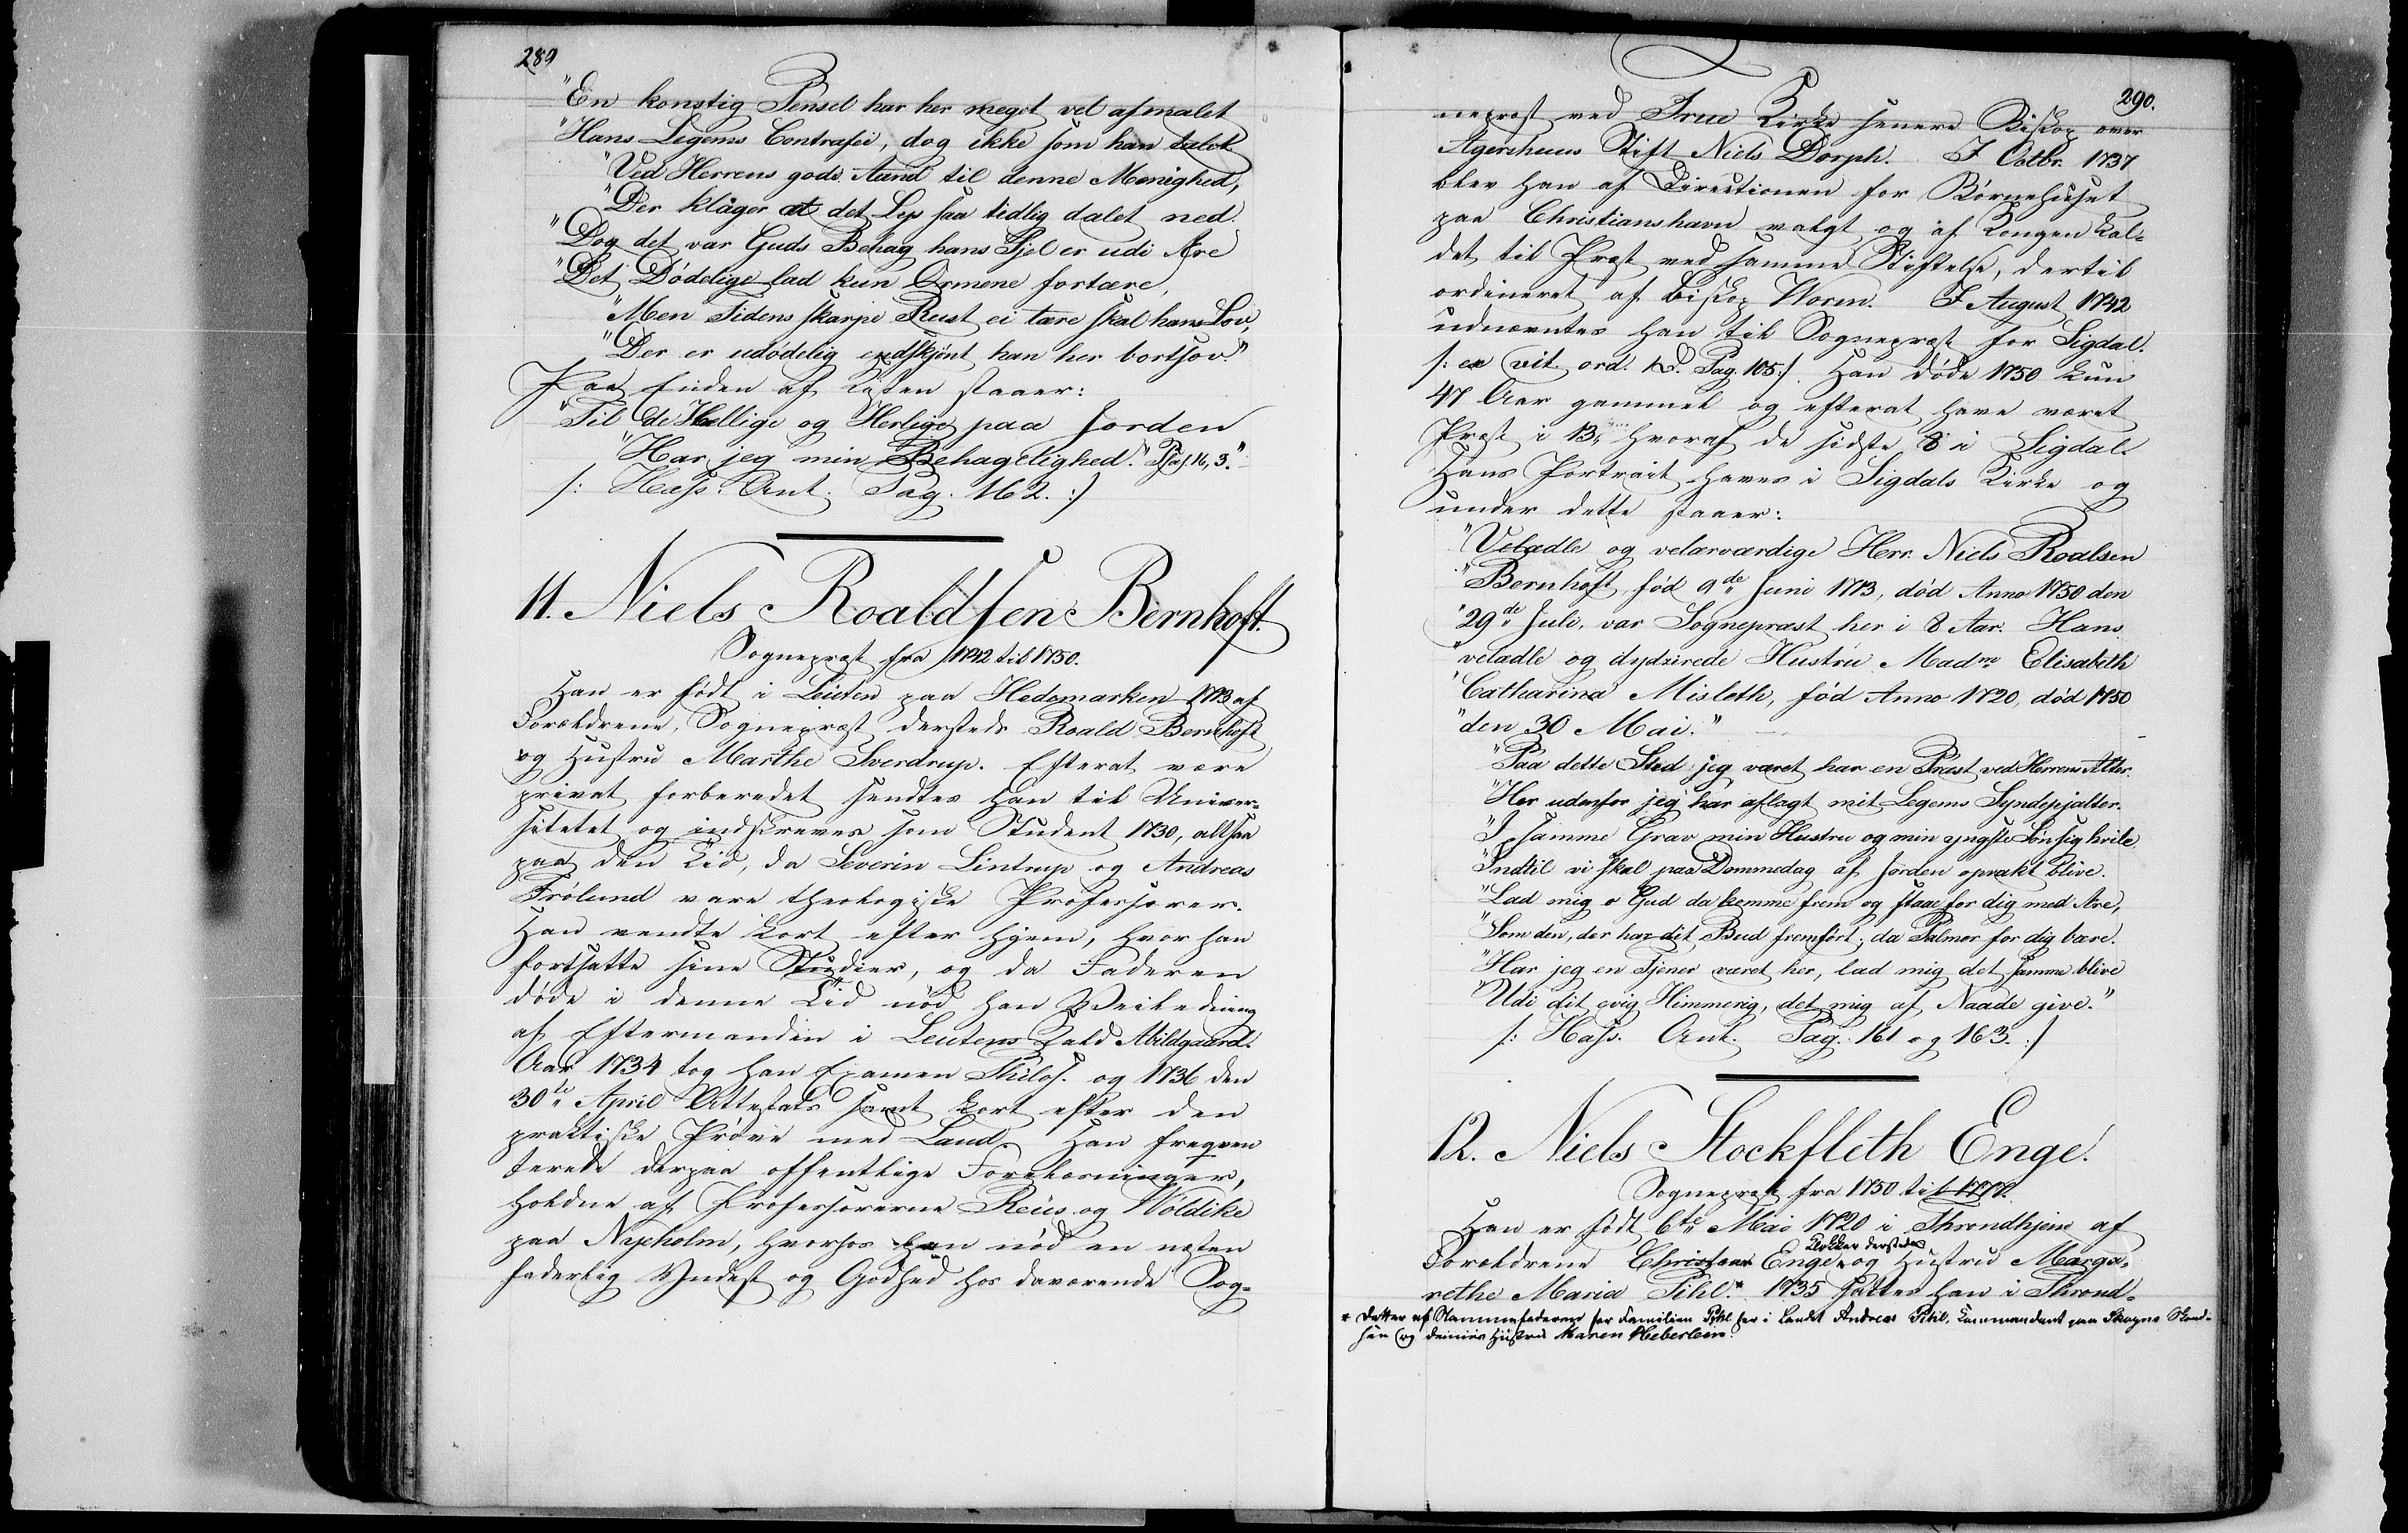 289
"En konstig Pensel har her meget vel afmalet
"Hans Legems Contrafei, dog ikke som han talet
"Ved Herrens gode Aand til denne Menighed,
"Der klager at det Lys saa tidlig dalet ned.
"Dog det var Guds Behag hans Sjel er udi Ære
"Det Dødelige lad kun Ormene fortære,
"Men Tidens skarpe Rust ei tære skal hans Lov,
"Der er udødelig endskjønt han her bortsov."
Paa Enden af Kisten staaer:
"Til de Hellige og Herlige paa Jorden
"Har jeg min Behagelighed." Psal. 16, 3."
/: Hass. Ant. Pag. 162. :/
11. Niels Roaldsen Bernhoft.
Sognepræst fra 1742 til 1750.
Han er født i Leuten paa Hedemarken 1713 af
Forældrene, Sognepræst dersteds Roald Bernhoft
og Hustru Marthe Sverdrup. Efterat være
privat forberedet sendtes han til Univer-
sitetet og indskreves som Student 1730, altsaa
paa den Tid, da Severin Lintrup og Andreas
Frølund vare theologiske Professorer.
Han vendte kort efter hjem, hvor han
fortsatte sine Studier, og da Faderen
døde i denne Tid nød han Veiledning
af Eftermanden i Leutens Kald Abildgaard.
Aar 1734 tog han Examen Philos. og 1736 den
30te April Attestats samt kort efter den
praktiske Prøve med Laud. Han freqven
terede derpaa offentlige Forelæsninger,
holdne af Professorerne Reus og Wöldike
paa Nyeholm, hvorhos han nød en næsten
faderlig Yndest og Godhed hos daværende Sog-
290.
nepræst ved Frue Kirke senere Biskop over
Agershuus Stift Niels Dorph. I Octbr. 1737
blev han af Directionen for Børnehuset
paa Christianshavn valgt og af Kongen kal-
det til Præst ved samme Stiftelse, dertil
ordineret af Biskop Worm. I August 1742
udnævntes han til Sognepræst for Sigdal.
/: ex vit. ord. Pag. 105 :/. Han døde 1750 kun
47 Aar gammel og efterat have været
Præst i 13, hvoraf de sidste 8 i Sigdal.
Hans Portrait haves i Sigdals Kirke og
under dette staaer:
"Velædle og velærværdige Herr. Niels Roalsen
"Bernhoft, fød 9de Juni 1713, død Anno 1750 den
"29de Juli, var Sognepræst her i 8 Aar. Hans
"velædle og dydzirede Hustru Madm Elisabeth
"Catharina Misleth, fød Anno 1720, død 1750
"den 30 Mai."
"Paa dette Sted jeg været har en Præst ved Herrens Alter.
"Her udenfor jeg har aflagt mit Legems Syndepjalter.
"I samme Grav min Hustru og min yngste Søn sig hvile.
"Indtil vi skal paa Dommedag af Jorden opvakt blive.
"Lad mig o Gud da komme frem og staae for dig med Ære,
"Som den, der har dit Bud fremført, da Palmer for dig bære.
"Har jeg en Tjener været her, lad mig det samme blive
"Udi dit evig Himmerig, det mig af Naade give."
/: Hass. Ant. Pag. 161 og 163. :/
12. Niels Stockfleth Enge.
Sognepræst fra 1750 til 1777.
Han er født 6te Mai 1720 i Throndhjem af
Klokker dersteds
Forældrene Christian Enge og Hustru Marga-
rethe Maria Pihl.* 1735 sattes han i Thrond-
* Datter af Stammefaderen for Familien Pihl her i Landet Andreas Pihl, Kommandant paa Skognes Skand-
se og dennes Hustru Maren Heberlein.